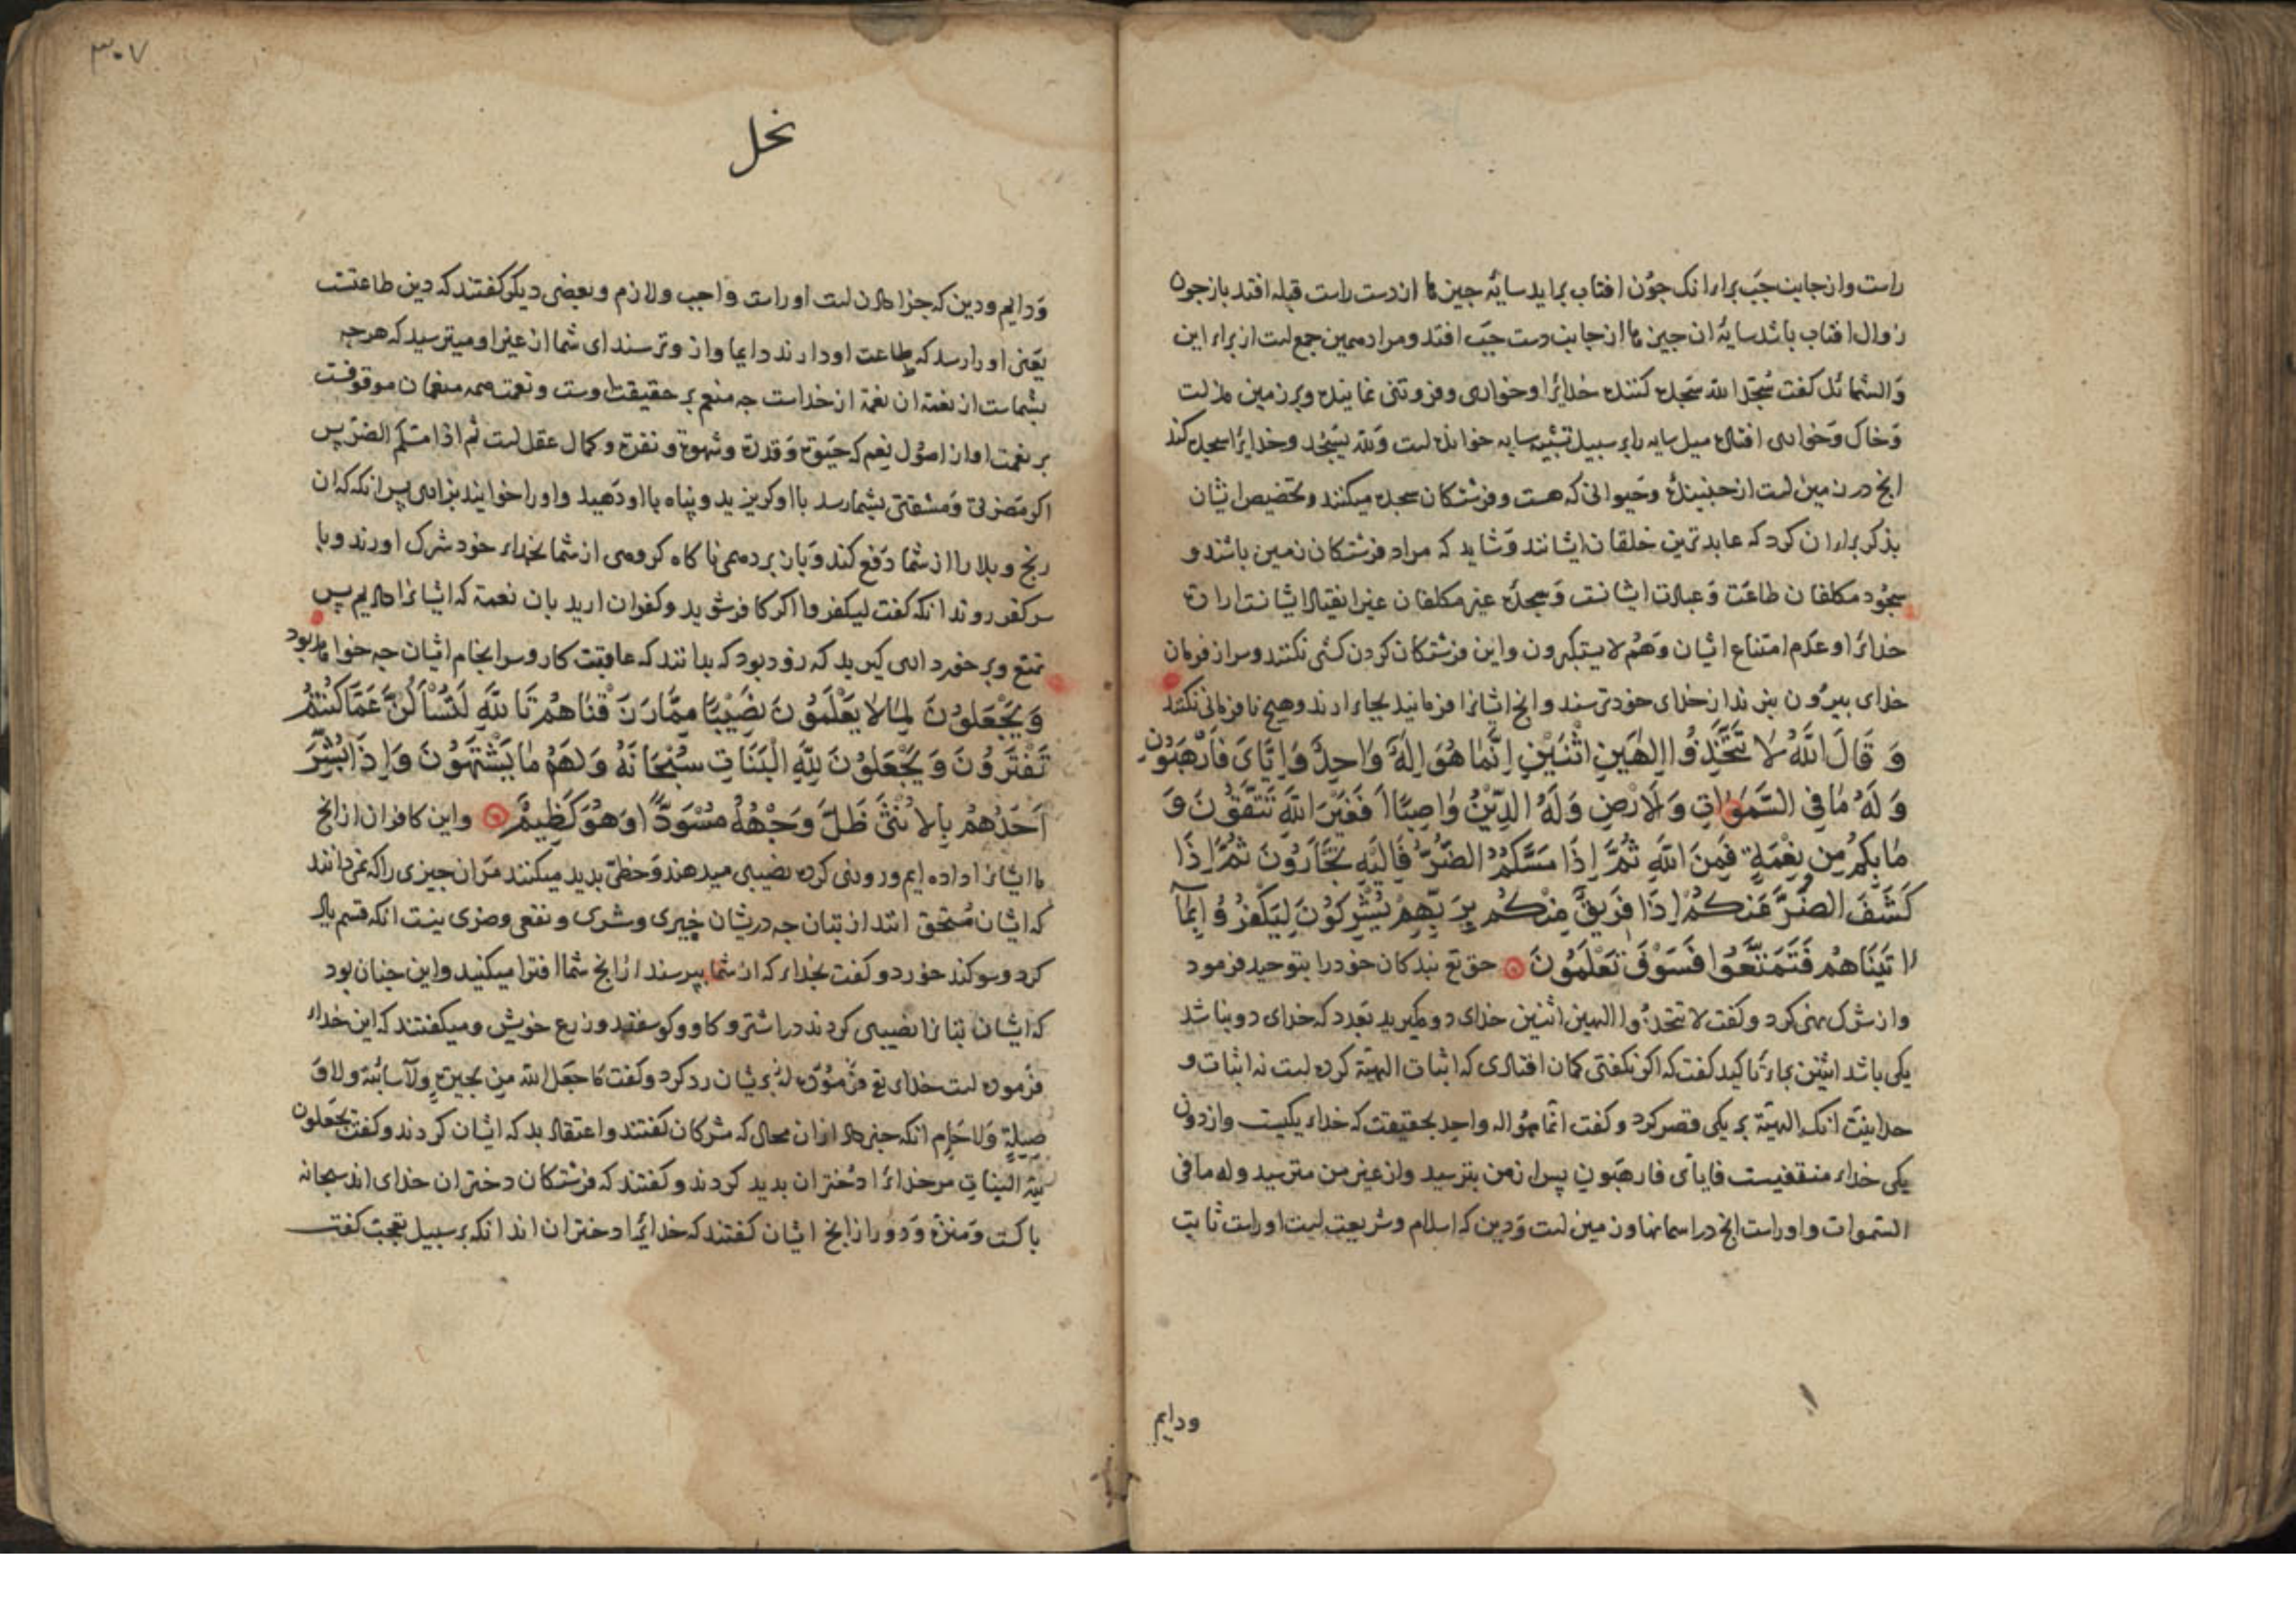 راست واز جانب چپ براء انک جون افتاب براید سایهٔ جین ها از دست راست قبله افتد باز جون
زوال افتاب باشد سایهٔ ان جین ها از جانب دست چپ افتد ومراد همین جمع است از براء این
والشمائل کفت سجدا لله سجده کننده خدایرا وخواری وفروتنی نماینده وبر زمین
وخاک وخواری افتاده میل سایه را بر سبیل تشبیه سایه خوانده است ولله یسجد وخدایرا سجده کند
انج در زمین است از جنبینده وحیوانی که هست وفرشتکان سجده میکنند وتخصیص ایشان
بذکر براء ان کرد که عابد ترین خلقان ایشانند وشاید که مراد فرشتکان زمین باشند و
سجود مکلفان طاعت وعبادت ایشانست وسجده غیر مکلفان غیر انقیاد ایشانست ارادت
خدایرا وعدم امتناع ایشان وهم لا یستکبرون واین فرشتکان کردن کشی نکنند وسر از فرمان
خدای بیرون نبرند از خدای خود ترسند وانج ایشانرا فرمایند بجای ارند وهیچ نافرمانی نکنند
وَقَالَ اللَّهُ لَا تَتَّخِذُوا إِلَهَيْنِ اثْنَيْنِ إِنَّمَا هُوَ إِلَهٌ وَاحِدٌ فَإِيَّايَ فَارْهَبُونِ
وَلَهُ مَا فِي السَّمَوَاتِ وَالْأَرْضِ وَلَهُ الدِّينُ وَاصِبًا أَفَغَيْرَ اللَّهِ تَتَّقُونَ وَ
مَا بِكُمْ مِن نِعْمَةٍ فَمِنَ اللَّهِ ثُمَّ إِذَا مَسَّكُمُ الضُّرُّ فَإِلَيْهِ تَجْأَرُونَ ثُمَّ إِذَا
كَشَفَ الضُّرَّ عَنكُمْ إِذَا فَرِيقٌ مِنْكُمْ بِرَبِّهِمْ يُشْرِكُونَ لِيَكْفُرُوا بِمَا
اتَيْنَاهُمْ فَتَمَتَّعُوا فَسَوْفَ تَعْلَمُونَ حق تع بندکان خودرا بتوحید فرمود
واز شرک نهی کرد وکفت لا تتخذوا الهین اثنین خدای دو مکیرید بعدد که خدای دو نباشد
یکی باشد اثنین براء تاکید کفت که اکر نکفتی کمان افتادی که اثبات الهیة کرده است نه اثبات و
حدانیت انک الهیة بر یکی قصر کرد وکفت انما هو اله واحد بحقیقت که خداء یکیست واز دوئی
یکی خداء منتفیست فایای فارهبون پس از من بترسید واز غیر من مترسید وله ما فی
السموات واوراست انج در اسمانها وزمین است ودین که اسلام وشریعت است اوراست ثابت
ودایم
٣٠٧
نحل
ودایم ودین که جزا دادن است اوراست واجب ولازم وبعضی دیکر کفتند که دین طاعتست
یعنی اورا رسد که طاعت او دارند دایما واز وترسند ای شما از غیر او میترسید که هرچه
بشماست از نعمة ان نعمة از خداست جه منعم بر حقیقت اوست ونعمت همه منعمان موقوفست
بر نعمت او از اصول نعم که حیوة وقدرة وشهوة ونفرة وکمال عقل است ثم اذا مسکم الضر پس
اکر مضرتی ومشقتی بشما رسد با او کریزید وپناه با او دهید واورا خوانید بزاری پس انکه که ان
رنج وبلا را از شما دفع کند وباز برد همی ناکاه کروهی از شما بخداء خود شرک اورند وبا
سر کفر روند انکه کفت لیکفروا اکر کافر شوید وکفران ارید بان نعمة که ایشانرا دادیم پس
تمتع وبر خورداری کیرید که زود بود که بدانند که عاقبت کار وسر انجام ایشان جه خواهد بود
وَيَجْعَلُونَ لِمَا لَا يَعْلَمُونَ نَصِيبًا مِمَّا رَزَقْنَاهُمْ تَاللَّهِ لَتُسْأَلُنَّ عَمَّا كُنْتُمْ
تَفْتَرُونَ وَيَجْعَلُونَ لِلَّهِ الْبَنَاتِ سُبْحَانَهُ وَلَهُمْ مَا يَشْتَهُونَ وَإِذَا بُشِّرَ
أَحَدُهُمْ بِالْأُنْثَى ظَلَّ وَجْهُهُ مُسْوَدًّا وَهُوَ كَظِيمٌ واین کافران از انج
ما ایشانرا داده ایم وروزی کرده نصیبی میدهند وحظی بدید میکنند مران جیزی را که نمی دانند
که ایشان مستحق انند از بتان جه در یشان خیری وشری ونفعی وضری نیست انکه قسم یاد
کرد وسوکند خورد وکفت بخداء که از شما بپرسند از انج شما افترا میکنید واین جنان بود
که ایشان بتانرا نصیبی کردند در اشتر وکاو وکوسفند وزرع خویش ومیکفتند که این خداء
فرموده است خدای تع فرموده است بریشان رد کرد وکفت ما جعل الله من بحیرة ولا سائبة ولا و
صیلة ولا حام انکه خبر داد از ان محال که مشرکان کفتند واعتقاد بد که ایشان کردند وکفت یجعلون
لله البنات مر خدایرا دختران بدید کردند وکفتند که فرشتکان دختران خدای اند سبحانه
باکست ومنزه ودور از انج ایشان کفتند که خدایرا دختران اند انکه بر سبیل تعجب کفت